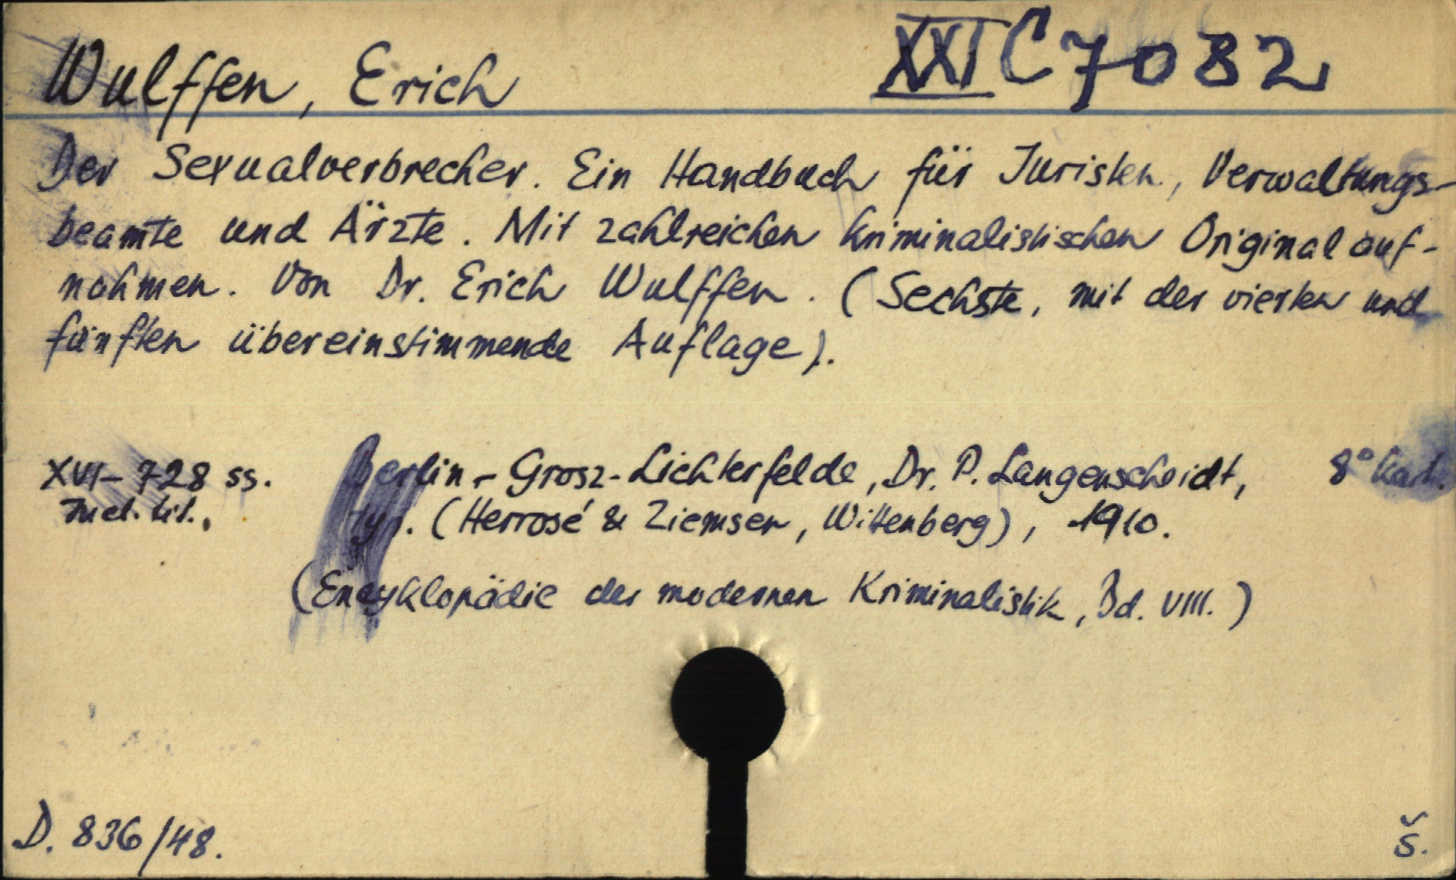 Wulffen, Erich
XXI C 7082
Der Sexualverbrecher. Ein Handbuch für Juristen, Verwaltungs-
beamte und Ärzte. Mit zahlreichen kriminalistischen Original auf-
nahmen. Von Dr. Erich Wulffen. (Sechste, mit der vierten und
fünften übereinstimmende Auflage).
XVI-728 ss. Berlin-Grosz-Lichterfelde, Dr. P. Langenscheidt, 8° kart.
Incl. tit., typ. (Herrosé & Ziemsen, Wittenberg), 1910.
(Encyklopädie der modernen Kriminalistik, Bd. VIII.)
D. 836/48.
š.